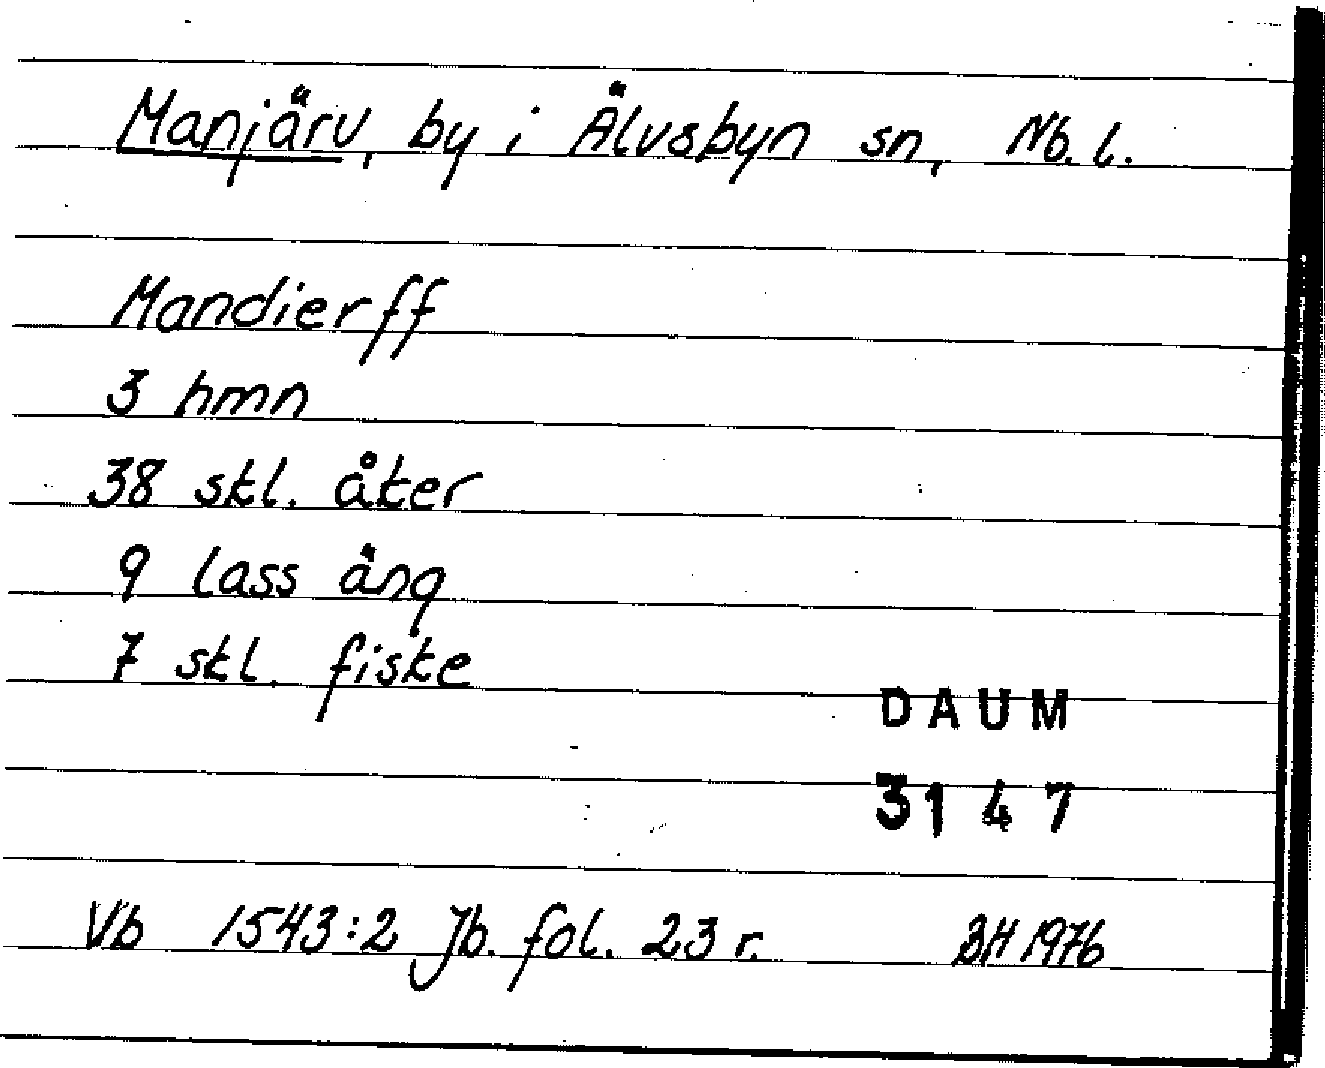 Manjärv, by i Älvsbyn sn, Nb. l.
Mandierff
3 hmn
38 skl. åker
9 lass äng
7 skl. fiske
DAUM
3147
Vb 1543:2 Jb. fol. 23 r. BH 1976